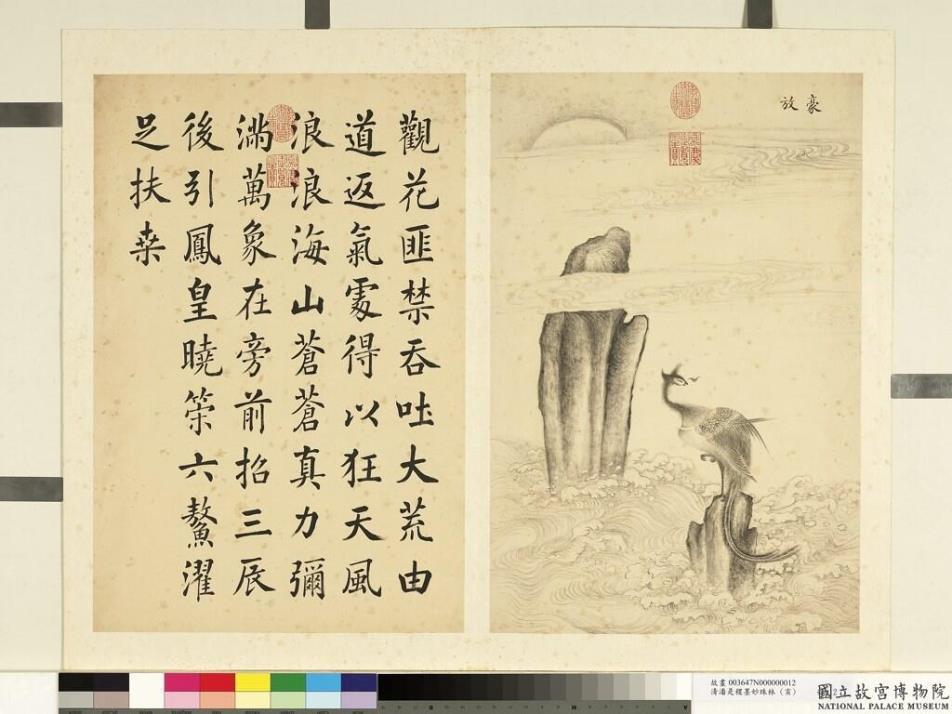 豪放
觀花匪禁吞吐大荒由
道返氣䖏得以狂天風
浪浪海山蒼蒼真力彌
滿萬象在旁前招三辰
後引鳳皇曉策六鰲濯
足扶桒
故畫 003647N000000012
清潘是稷墨妙珠林(寅)
國立故宮博物院
NATIONAL PALACE MUSEUM